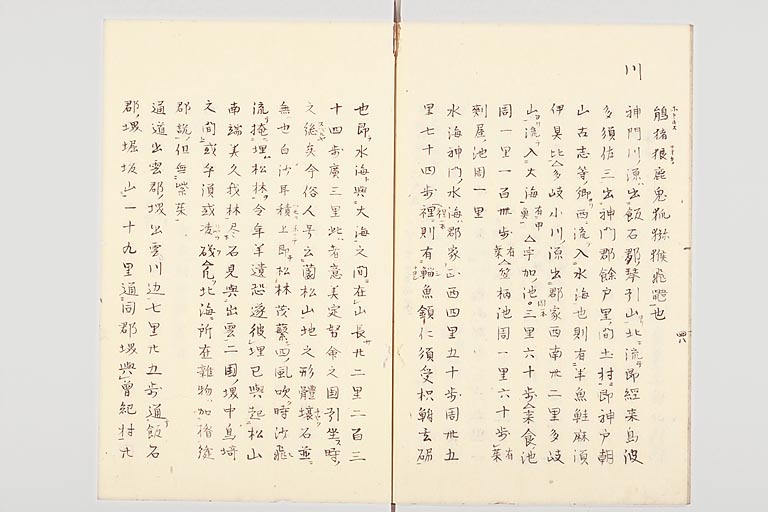 川
鵠猪狼鹿兎狐猕猴飛鼯也
神門川源出飯石郡琴引山北流即経来島波
多須佐三出神門郡餘戸里間土村即神戸朝
山古志等郷西流入水海也則有年魚鮭麻須
伊具比多岐小川源出郡家西南卅三里多岐
山流入大海有年魚宇加池三里六十歩来食池
周一里一百卅歩有菜笠柄池周一里六十歩有菜
刺屋池周一里
水海神門水海郡家正西四里五十歩周卅五
里七十四歩裡則有鯔魚鎮仁須受枳鮒玄蛎
也即水海與大海之間在山長廿二里二百三
十四歩廣三里此者意美定努命之国引坐時
之綱矣今俗人号云薗松山地之形體壌石並
無也白沙耳積上即松林茂繁四風吹時沙飛
流掩埋松林今年半遺恐遂彼埋已與起松山
南端美久我林尽石見與出雲二国堺中島埼
之間或平須或凌礒凡北海所在雜物如楯縫
郡説但無紫菜
通道出雲郡堺出雲川辺七里廿五歩通飯石
郡堺堀坂山一十九里通同郡堺與曾紀村廿